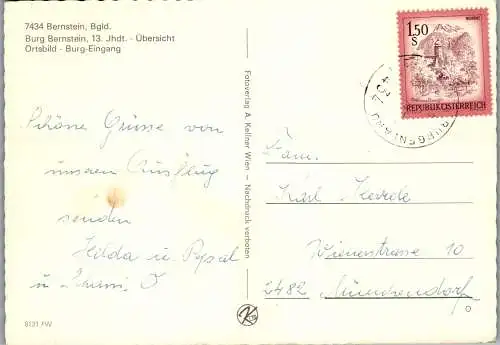 7434 Bernstein, Bgld.
Burg Bernstein, 13. Jhdt. - Übersicht
Ortsbild - Burg-Eingang
1,50
S
REPUBLIK ÖSTERREICH
Fotoverlag A. Kellner Wien — Nachdruck verboten
Schöne Grüsse von
unseren Ausflug
senden
Hilda u.
u.
Fam.
Karl
Wienerstrasse 10
2482 Münchendorf
8131 FW